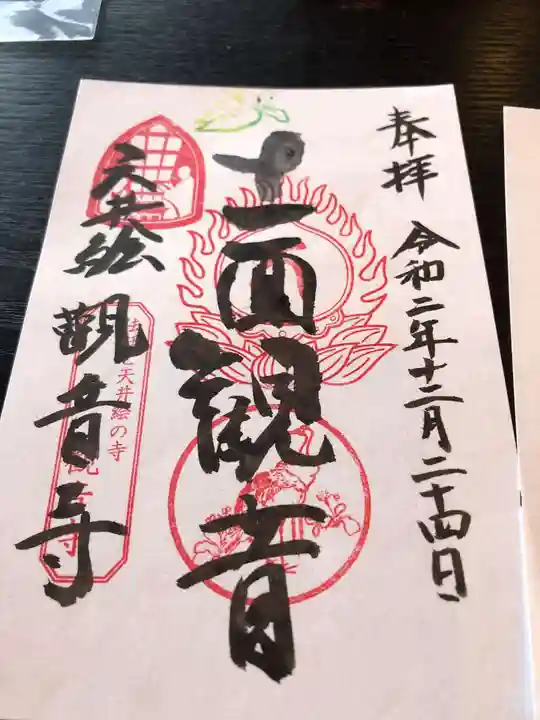 奉拝
令和二年十二月二十四日
十一面観音
天井絵
觀音寺
天井絵の寺